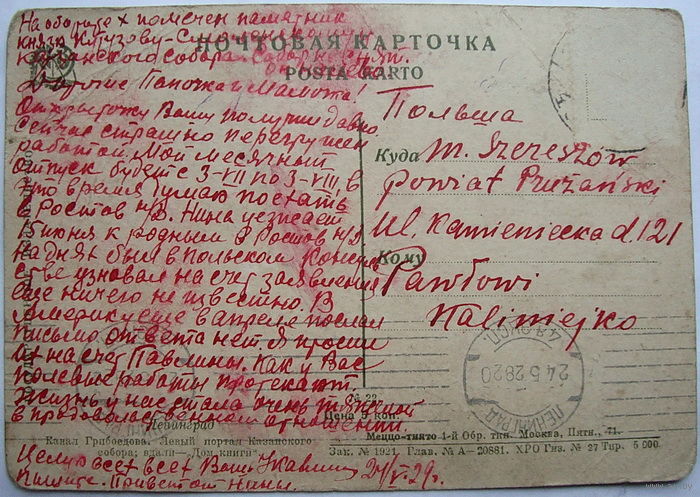 На обороте × помечен памятник
князю Кутузову-Смоленскому
Казанского Собора. Собор не снят.
ПОЧТОВАЯ КАРТОЧКА
POSTA KARTO
Дорогие Папочка и Мамочка!
Открыточку Вашу получил давно
Сейчас страшно перегружен
работой. Мой месячный
отпуск будет с 3-VII по 3-VIII, в
это время думаю поехать
в Ростов н/Д. Нина уезжает
15 июня к родным в Ростов н/Д
На днях был в Польском Консуль
стве узнавал на счет заявления
еще ничего не известно. В
Америку еще в апреле послал
письмо ответа нет. Я просил
их на счет Павлины. Как у Вас
полевые работы протекают.
Жизнь у нас стала очень тяжелой
в продовольственном отношении.
Целую всех всех Ваш
Пишите. Привет от Нины. 24/V-29г.
Польша
Куда
m. Szereszów
powiat Prużański
ul. Kamieniecka d. 121
Кому
Pawłowi
Kaliniejko
ЛЕНИНГРАД
24.5.29 20
№ 22.
Цена 5 коп.
Ленинград
Канал Грибоедова. Левый портал Казанского
собора; вдали—„Дом книги“.
Меццо-тинто 1-й Обр. тип. Москва, Пятн., 71.
Зак. № 1921. Глав. № А—20881. ХРО Гиз. № 27 Тир. 5 000